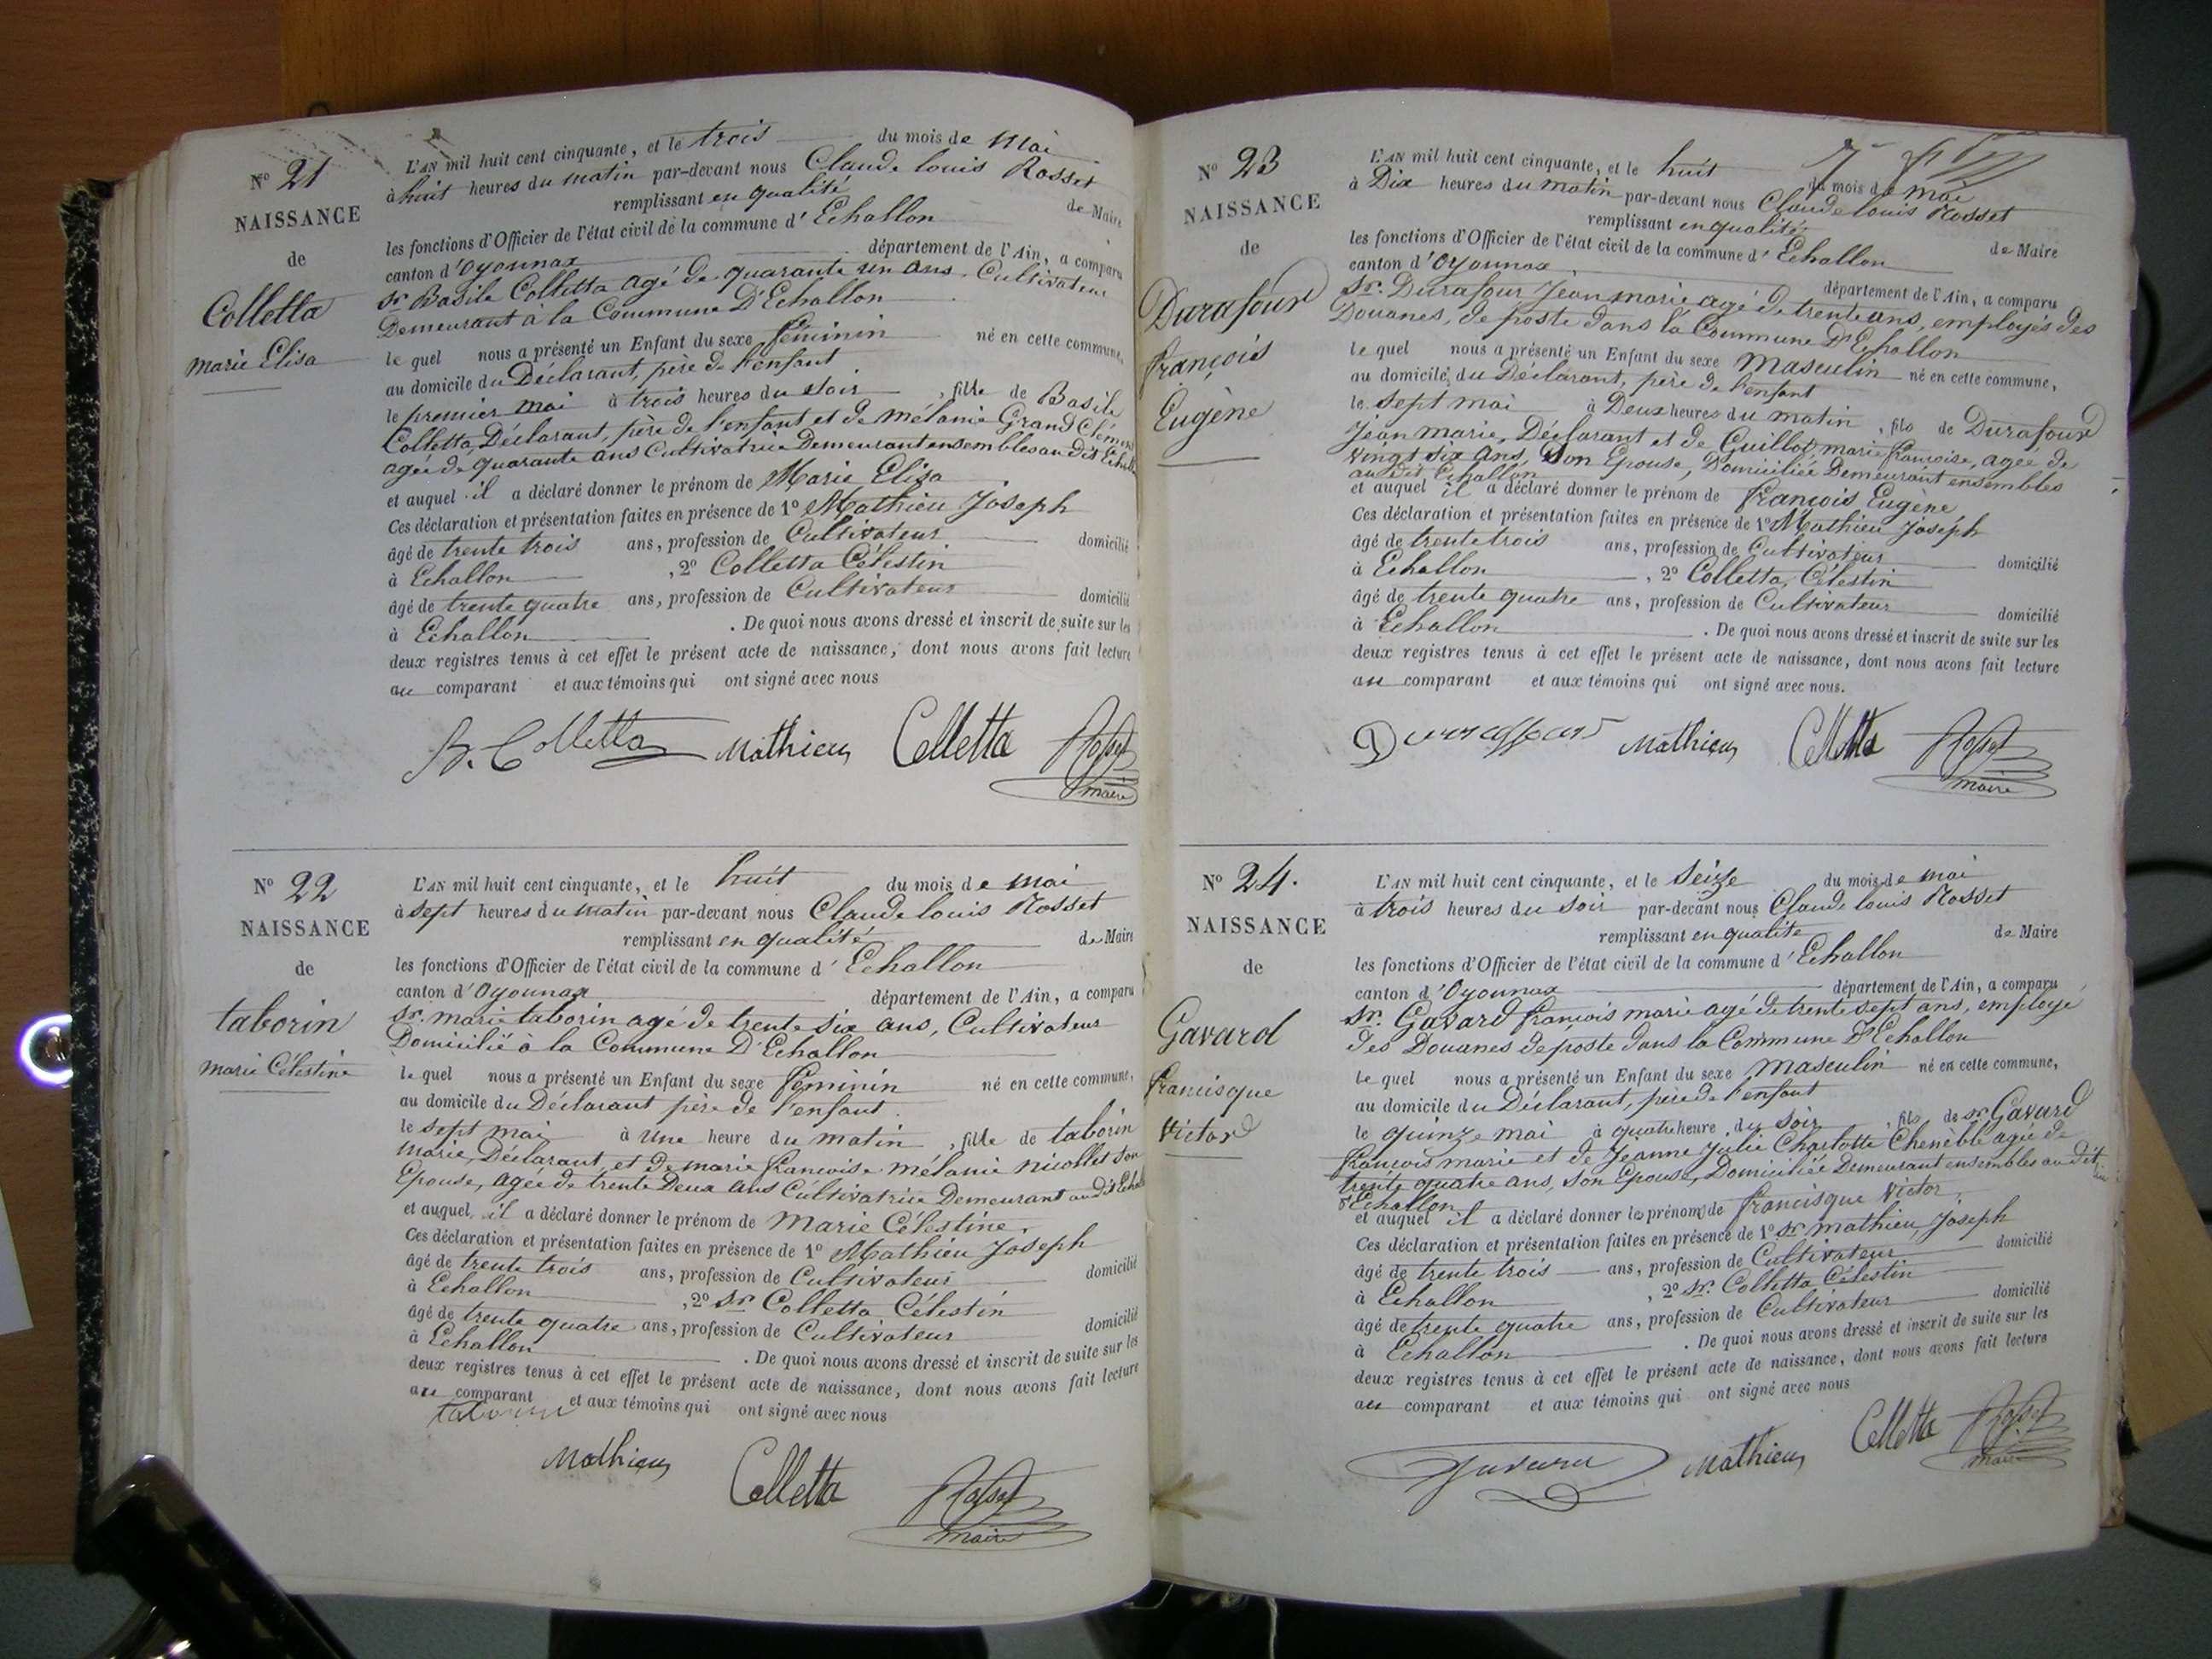 N° 21
NAISSANCE
de
Colletta
marie Elisa
L'AN mil huit cent cinquante, et le trois du mois de Mai
à huit heures du matin par-devant nous Claude louis Rosset
remplissant en qualité de Maire
les fonctions d'Officier de l'état civil de la commune d' Echallon
canton d'Oyonnax département de l'Ain, a comparu
Sr. Basile Colletta agé de quarante un ans, Cultivateur
Demeurant à la Commune D'Echallon
le quel nous a présenté un Enfant du sexe féminin né en cette commune,
au domicile du Déclarant, père de l'enfant
le premier mai à trois heures du soir, fille de Basile
Colletta, Déclarant, père de l'enfant et de mélanie Grand Clément
agée de quarante ans Cultivatrice Demeurant ensembles au dit Echallon
et auquel il a déclaré donner le prénom de Marie Elisa
Ces déclaration et présentation faites en présence de 1° Mathieu Joseph
âgé de trente trois ans, profession de Cultivateur domicilié
à Echallon, 2° Colletta Célestin
âgé de trente quatre ans, profession de Cultivateur domicilié
à Echallon. De quoi nous avons dressé et inscrit de suite sur les
deux registres tenus à cet effet le présent acte de naissance, dont nous avons fait lecture
au comparant et aux témoins qui ont signé avec nous
B. Colletta Mathieu Colletta Rosset
maire
N° 22
NAISSANCE
de
taborin
marie Célestine
L'AN mil huit cent cinquante, et le huit du mois de mai
à sept heures du matin par-devant nous Claude louis Rosset
remplissant en qualité de Maire
les fonctions d'Officier de l'état civil de la commune d' Echallon
canton d'Oyonnax département de l'Ain, a comparu
Sr. marie taborin agé de trente six ans, Cultivateur
Domicilié à la Commune D'Echallon
le quel nous a présenté un Enfant du sexe féminin né en cette commune,
au domicile du Déclarant père de l'enfant.
le sept mai à une heure du matin, fille de taborin
marie, Déclarant, et de marie françoise mélanie nicollet son
Epouse, agée de trente Deux ans Cultivatrice Demeurant au dit Echallon
et auquel il a déclaré donner le prénom de Marie Célestine.
Ces déclaration et présentation faites en présence de 1° Mathieu Joseph
âgé de trente trois ans, profession de Cultivateur domicilié
à Echallon, 2° Sr Colletta Célestin
âgé de trente quatre ans, profession de Cultivateur domicilié
à Echallon. De quoi nous avons dressé et inscrit de suite sur les
deux registres tenus à cet effet le présent acte de naissance, dont nous avons fait lecture
au comparant et aux témoins qui ont signé avec nous
taborin
Mathieu Colletta Rosset
maire
N° 23
NAISSANCE
de
Durafour
françois
Eugène
L'AN mil huit cent cinquante, et le huit du mois de mai
à Dix heures du matin par-devant nous Claude louis Rosset
remplissant en qualité de Maire
les fonctions d'Officier de l'état civil de la commune d' Echallon
canton d'Oyonnax, département de l'Ain, a comparu
Sr. Durafour Jean marie agé de trente ans, employés des
Douanes, de poste dans la Commune D'Echallon
le quel nous a présenté un Enfant du sexe Masculin né en cette commune,
au domicile du Déclarant, père de l'enfant
le sept mai à Deux heures du matin, fils de Durafour
Jean marie, Déclarant et de Guillot, marie françoise, agée de
vingt six ans, Son Epouse, Domiciliée Demeurant ensembles
au dit Echallon
et auquel il a déclaré donner le prénom de françois Eugène
Ces déclaration et présentation faites en présence de 1° Mathieu Joseph
âgé de trente trois ans, profession de Cultivateur domicilié
à Echallon, 2° Colletta, Célestin
âgé de trente quatre ans, profession de Cultivateur domicilié
à Echallon. De quoi nous avons dressé et inscrit de suite sur les
deux registres tenus à cet effet le présent acte de naissance, dont nous avons fait lecture
au comparant et aux témoins qui ont signé avec nous.
Mathieu Colletta Rosset
maire
N° 24.
NAISSANCE
de
Gavard
francisque
Victor
L'AN mil huit cent cinquante, et le Seize du mois de mai
à trois heures du soir par-devant nous Claude louis Rosset
remplissant en qualité de Maire
les fonctions d'Officier de l'état civil de la commune d' Echallon
canton d'Oyonnax département de l'Ain, a comparu
Sr. Gavard françois marie agé de trente sept ans, employé
des Douanes de poste dans la Commune D'Echallon
le quel nous a présenté un Enfant du sexe masculin né en cette commune,
au domicile du Déclarant, père de l'enfant
le quinze mai à quatre heure du soir, fils de sr Gavard
françois marie et de Jeanne Julie Charlotte Chenèble agée de
trente quatre ans, son Epouse, Domiciliée Demeurant ensembles au dit
d'Echallon
et auquel il a déclaré donner les prénoms de francisque Victor
Ces déclaration et présentation faites en présence de 1° Sr mathieu, Joseph
âgé de trente trois ans, profession de Cultivateur domicilié
à Echallon, 2° Sr. Colletta Célestin
âgé de trente quatre ans, profession de Cultivateur domicilié
à Echallon. De quoi nous avons dressé et inscrit de suite sur les
deux registres tenus à cet effet le présent acte de naissance, dont nous avons fait lecture
au comparant et aux témoins qui ont signé avec nous
Gavard Mathieu Colletta Rosset
maire